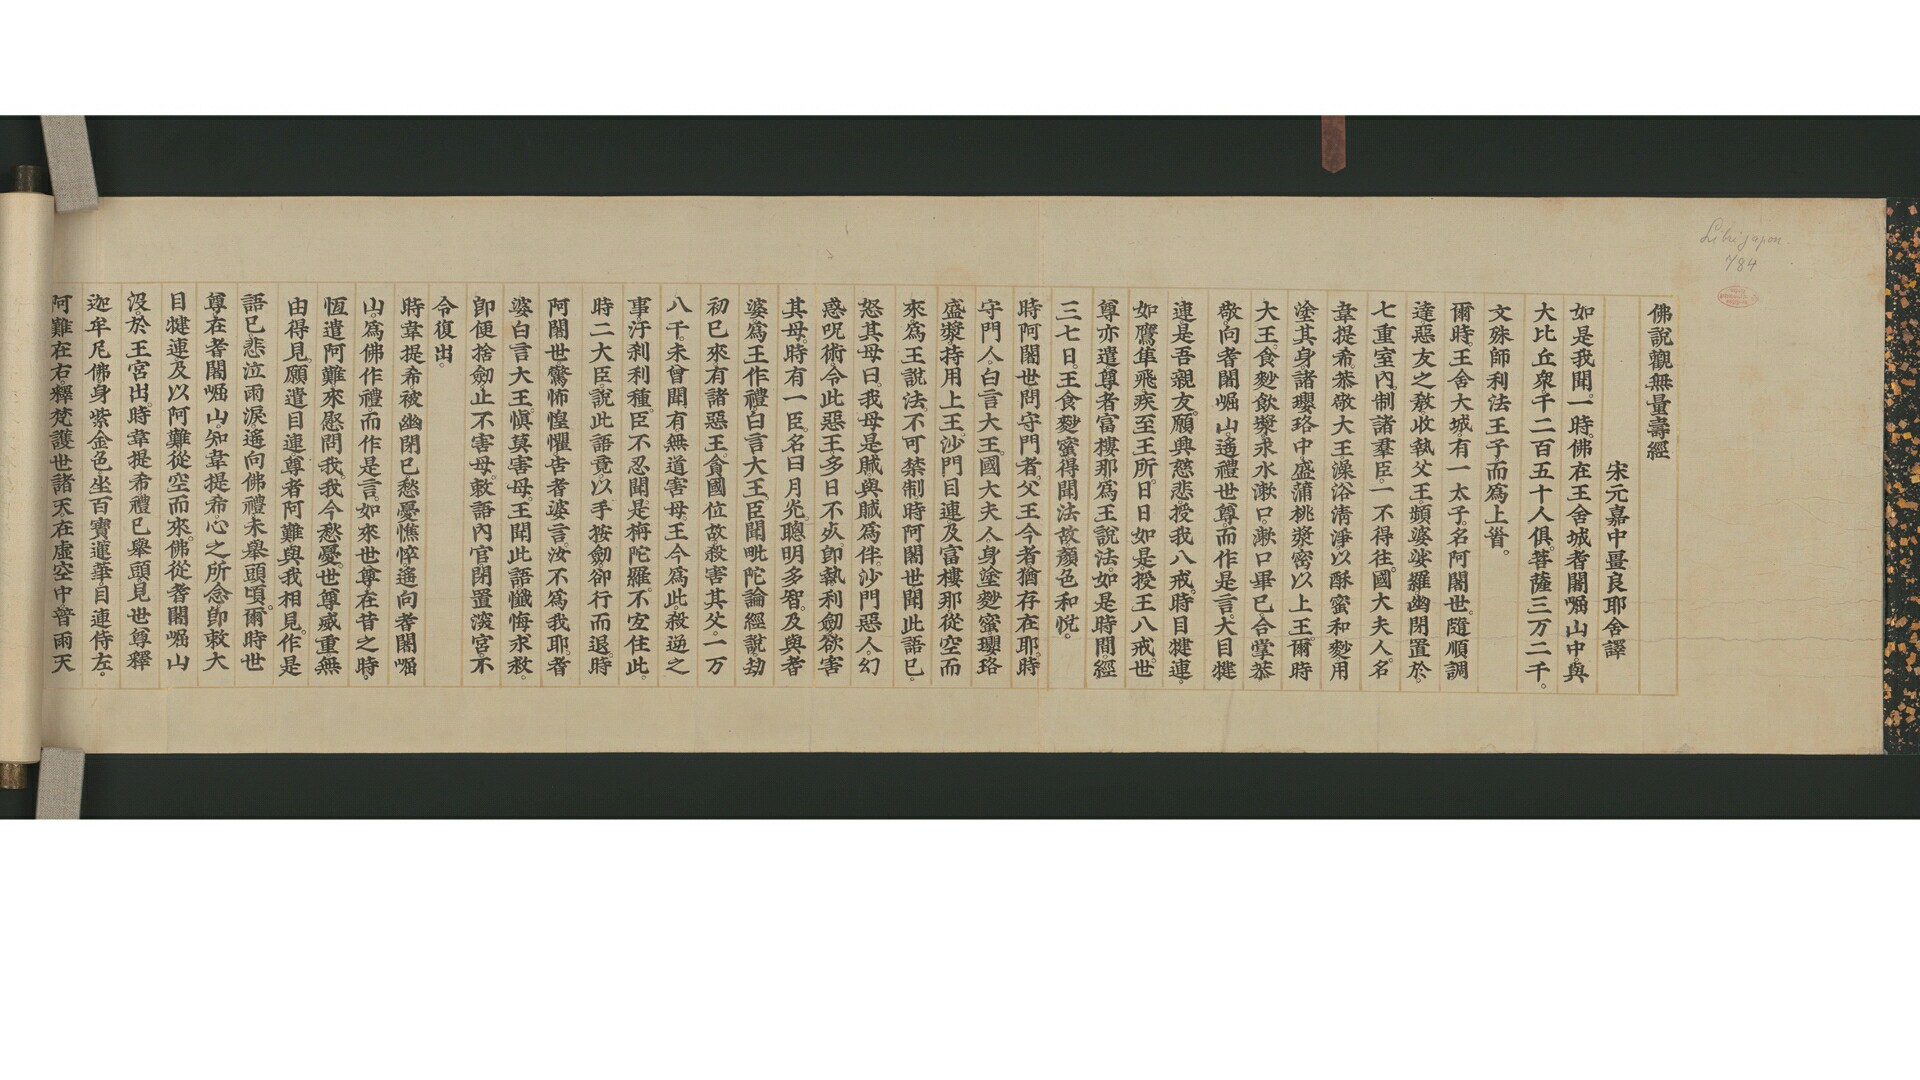 佛說觀無量壽經
宋元嘉中畺良耶舍譯
如是我聞。一時。佛在王舍城耆闍崛山中。與
大比丘衆千二百五十人俱。菩薩三万二千。
文殊師利法王子而爲上首。
爾時。王舍大城有一太子。名阿闍世。隨順調
達惡友之教。收執父王。頻婆娑羅。幽閉置於
七重室內。制諸羣臣。一不得往。國大夫人。名
韋提希。恭敬大王。澡浴淸淨。以酥蜜和麨用
塗其身。諸瓔珞中。盛蒲桃漿。密以上王。爾時
大王。食麨飮漿。求水漱口。漱口畢已。合掌恭
敬。向耆闍崛山。遙禮世尊。而作是言。大目犍
連。是吾親友。願興慈悲。授我八戒。時目犍連。
如鷹隼飛。疾至王所。日日如是。授王八戒。世
尊亦遣尊者富樓那。爲王說法。如是時間。經
三七日。王食麨蜜。得聞法故。顏色和悅。
時阿闍世。問守門者。父王今者。猶存在耶。時
守門人。白言大王。國大夫人。身塗麨蜜。瓔珞
盛漿。持用上王。沙門目連。及富樓那。從空而
來。爲王說法。不可禁制。時阿闍世。聞此語已。
怒其母曰。我母是賊。與賊爲伴。沙門惡人。幻
惑呪術。令此惡王。多日不死。卽執利劒。欲害
其母。時有一臣。名曰月光。聰明多智。及與耆
婆。爲王作禮。白言大王。臣聞毗陀論經說。劫
初已來。有諸惡王。貪國位故。殺害其父。一万
八千。未曾聞有無道害母。王今爲此。殺逆之
事。汙刹利種。臣不忍聞。是栴陀羅。不宜住此。
時二大臣。說此語竟。以手按劒。卻行而退。時
阿闍世。驚怖惶懼。告耆婆言。汝不爲我耶。耆
婆白言大王。愼莫害母。王聞此語。懺悔求救。
卽便捨劒。止不害母。敕語內官。閉置深宮。不
令復出。
時韋提希。被幽閉已。愁憂憔悴。遙向耆闍崛
山。爲佛作禮。而作是言。如來世尊。在昔之時。
恆遣阿難。來慰問我。我今愁憂。世尊威重。無
由得見。願遣目連。尊者阿難。與我相見。作是
語已。悲泣雨淚。遙向佛禮。未舉頭頃。爾時世
尊。在耆闍崛山。知韋提希心之所念。卽敕大
目犍連。及以阿難。從空而來。佛從耆闍崛山
沒。於王宮出。時韋提希。禮已舉頭。見世尊釋
迦牟尼佛。身紫金色。坐百寶蓮華。目連侍左。
阿難在右。釋梵護世諸天。在虛空中。普雨天
Libri japon
784